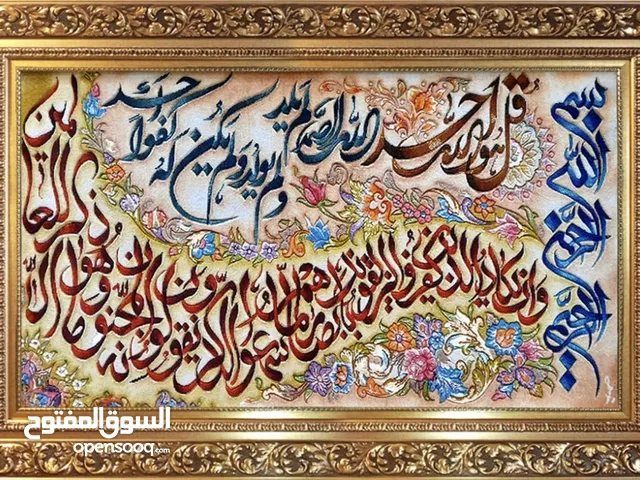 بسم الله الرحمن الرحيم
قل هو الله احد الله الصمد لم يلد ولم يولد ولم يكن له كفوا احد
وان يكاد الذين كفروا ليزلقونك بابصارهم لما سمعوا الذكر ويقولون انه لمجنون وما هو الا ذكر للعالمين
السوق المفتوح
opensooq.com